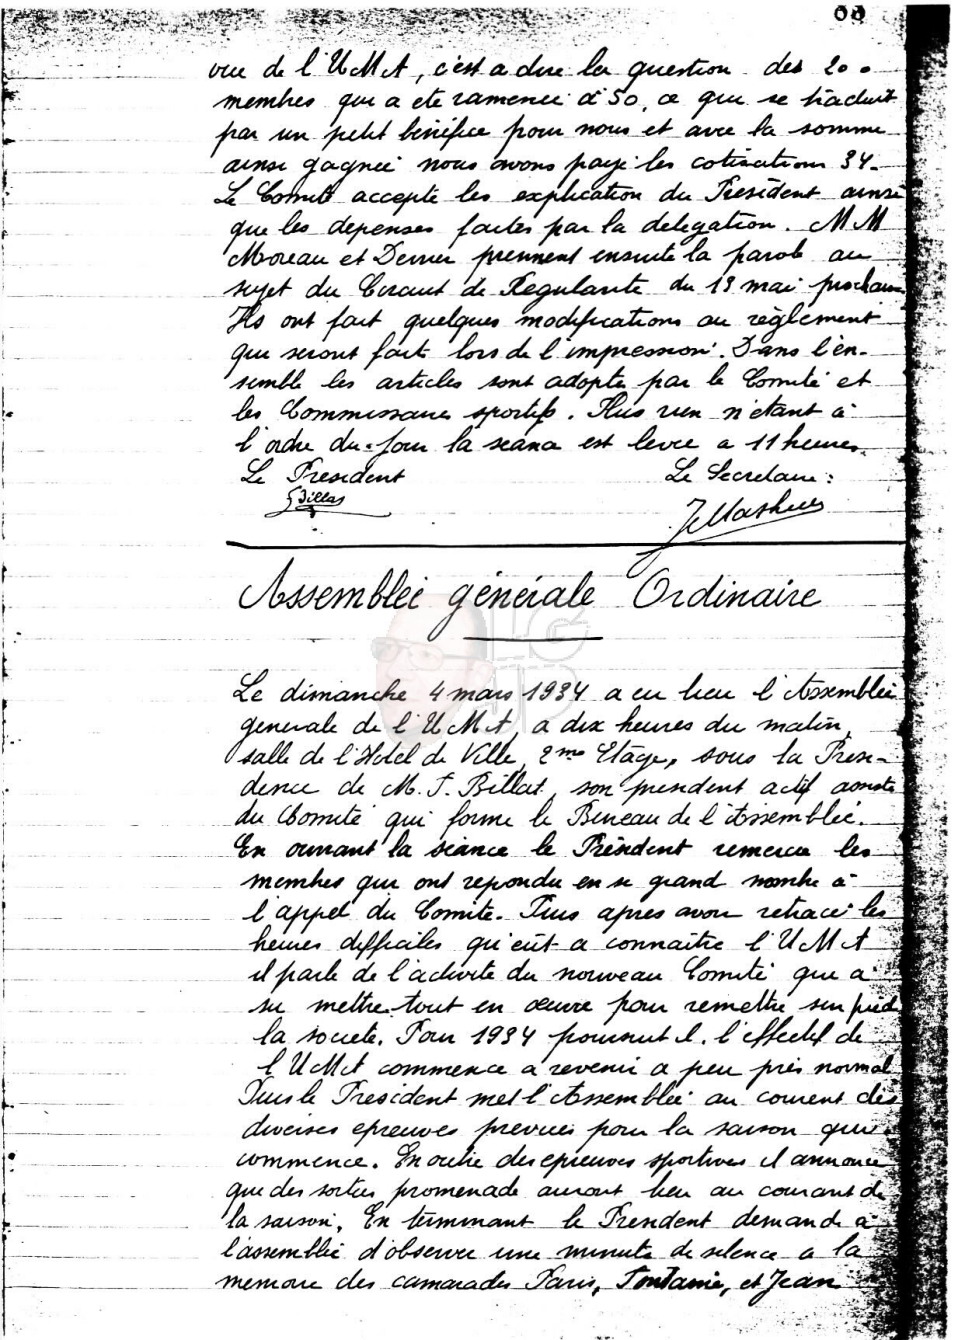 vue de l'UMA, c'est a dire la question des 200
membres qui a ete ramenée à 50, ce qui se traduit
par un petit bénéfice pour nous et avec la somme
ainsi gagnée nous avons payé les cotisations 34.
Le Comité accepte les explication du Président ainsi
que les depenses faites par la delegation. MM
Moreau et Derrier prennent ensuite la parole au
sujet du Circuit de Regularite du 13 mai prochain
Ils ont fait quelques modifications au règlement
qui seront fait lors de l'impression. Dans l'en-
semble les articles sont adopte par le Comité et
les Commissaires sportifs. Plus rien n'étant à
l'ordre du-Jour la seance est levee a 11 heures.
Le President Le Secretaire:
Billat
Assemblée générale Ordinaire
Le dimanche 4 mars 1934 a eu lieu l'Assemblée
generale de l'UMA, a dix heures du matin,
salle de l'Hotel de Ville, 2me Etage, sous la Presi-
dence de M. F. Billat, son president actif assisté
du Comité qui forme le Bureau de l'Assemblée.
En ouvrant la séance le Président remercie les
membres qui ont repondu en si grand nombre à
l'appel du Comite. Puis apres avoir retracé les
heures difficiles qu'eût a connaitre l'UMA
il parle de l'activite du nouveau Comité qui a
su mettre tout en œuvre pour remettre sur pied
la societé. Pour 1934 poursuit il, l'effectif de
l'UMA commence a revenir a peu près normal
Puis le Président met l'Assemblée au courent des
diverses epreuves prevues pour la saison qui
commence. En outre des epreuves sportives il annonce
que des sorties promenade auront lieu au courant de
la saison. En terminant le President demande a
l'assemblée d'observer une minute de silence a la
memoire des camarades Paris, Fontaine, et Jean